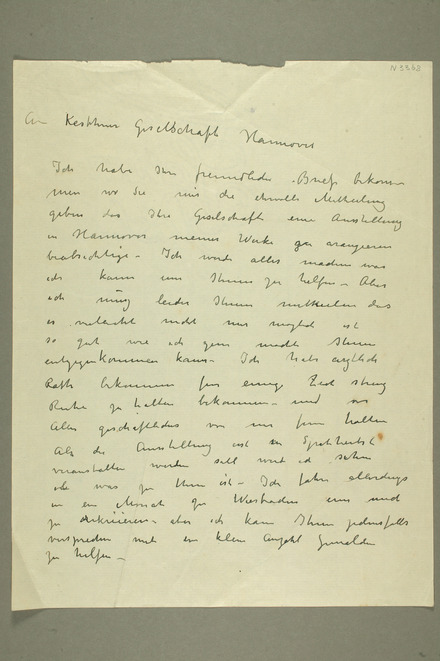 N 3348
An Kestner Gesellschaft Hannover
Ich habe Ihr freundliche Brief bekom
men wo Sie mir die ehrvolle Mittheilung
geben das Ihre Gesellschaft eine Ausstellung
in Hannover meiner Werke zu arangieren
beabsichtige – Ich werde alles machen was
ich kann um Ihnen zu helfen – Aber
ich muss leider Ihnen mittheilen das
es vielleicht nicht mir möglich ist
so gut wie ich gern möchte Ihnen
entgegenkommen kann – Ich habe
Rath bekommen für einige Zeit streng
Ruhe zu halten bekommen – und
Alles geschäftliches von mir fern halten
Als die Ausstellung ist im Spätherbst
veranstalten werden soll werd ich sehen
ob was zu thun ist – Ich fahre allerdings
in ein Monat zu Wiesbaden und
zu – aber ich kann Ihnen jedenfalls
versprechen mit ein klein Anzahl Gemälden
zu helfen –